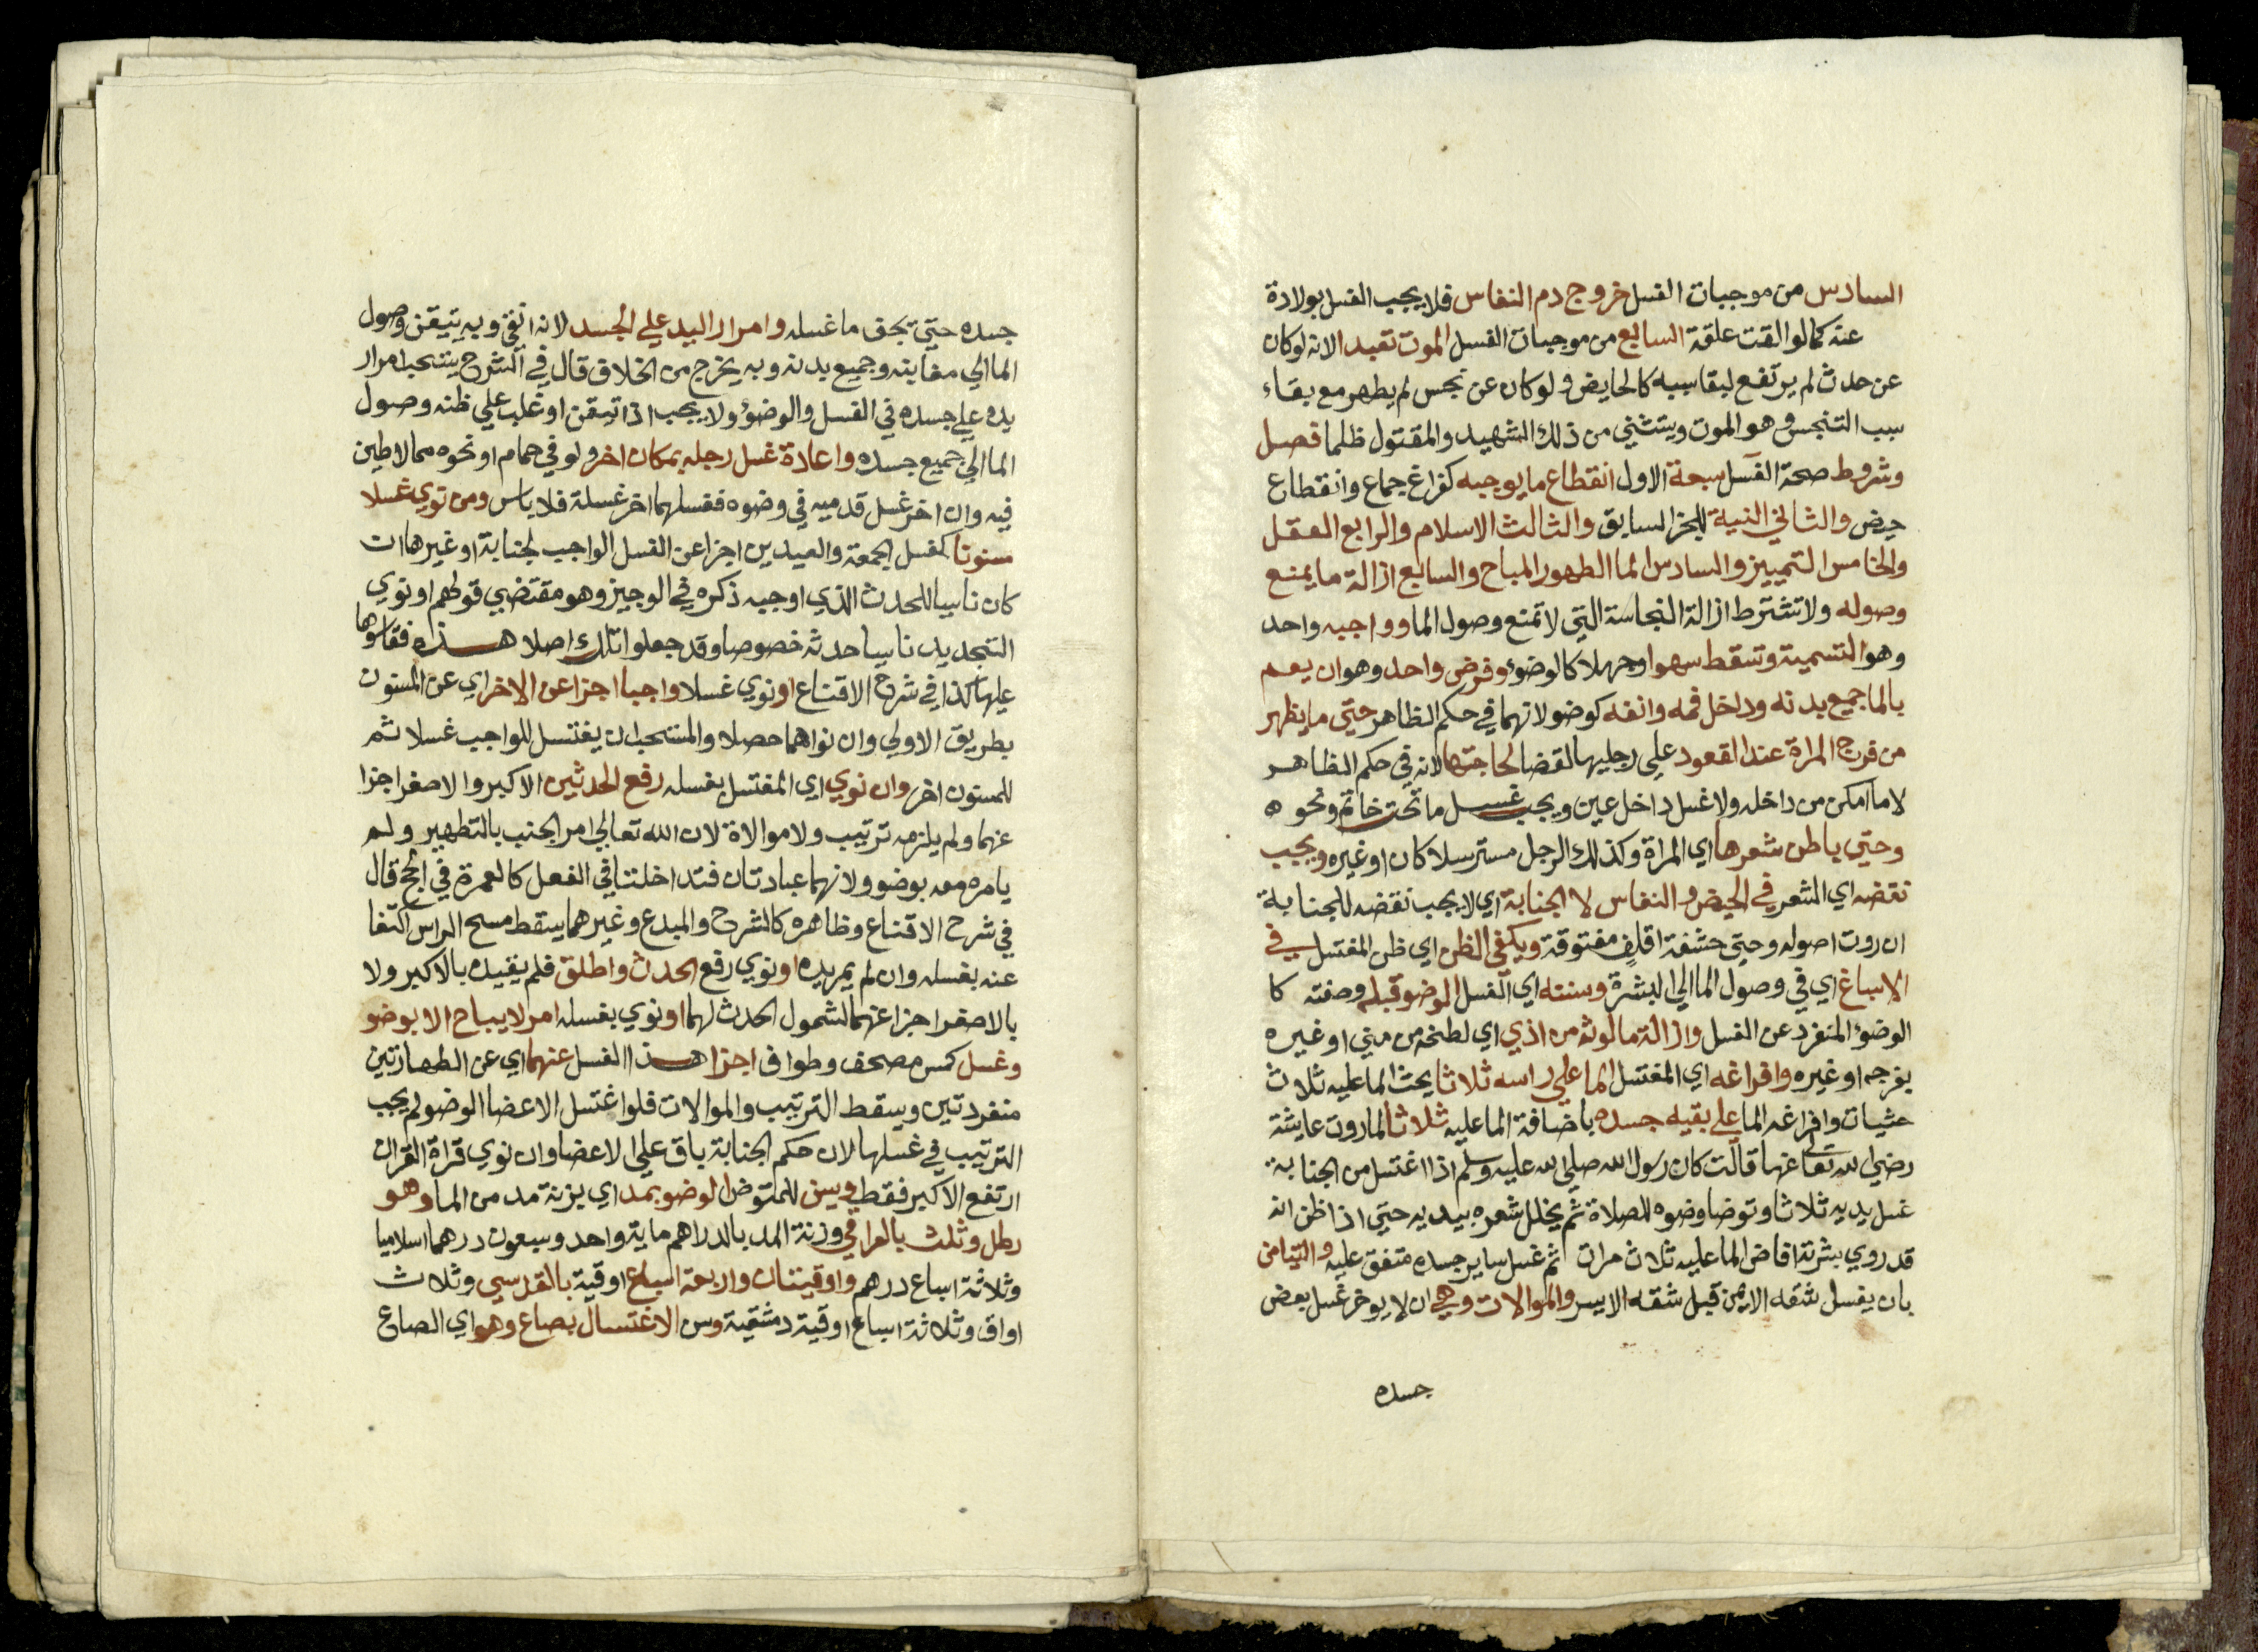 السادس من موجبات الغسل خروج دم النفاس فلا يجب الغسل بولادة
عنه كما لو القت علقة السابع من موجبات الغسل الموت تعبدا لانه لو كان
عن حدث لم يرتفع لبقا سببه كالحايض ولو كان عن نجس لم يطهر مع بقاء
سبب التنجس وهو الموت ويستثني من ذلك الشهيد والمقتول ظلما فصل
وشروط صحة الغسل سبعة الاول انقطاع ما يوجبه كفراغ جماع وانقطاع
حيض والثاني النية للخبر السابق والثالث الاسلام والرابع العقل
والخامس التمييز والسادس الما الطهور المباح والسابع ازالة ما يمنع
وصوله ولا تشترط ازالة النجاسة التي لا تمنع وصول الما وواجبه واحد
وهو التسمية وتسقط سهوا وجهلا كالوضوٴ وفرض واحد وهو ان يعم
بالما جميع بدنه وداخل فمه وانفه كوضو لانهما في حكم الظاهر حتي ما يظهر
من فرج المراة عند القعود علي رجليها لقضا لحاجتها لانه في حكم الظاهر
لا ما امكن من داخله ولا غسل داخل عين ويجب غسل ما تحت خاتم ونحوه
وحتي باطن شعرها اي المراة وكذلك الرجل مسترسلا كان او غيره ويجب
نقضه اي الشعر في الحيض والنفاس لا الجنابة اي لا يجب نقضه للجنابة
ان روت اصوله وحتي حشفة اقلف مفتوقة ويكفي الظن اي ظن المغتسل في
الاسباغ اي في وصول الما الي البشرة وسننه اي الغسل الوضو قبله وصفته كا
الوضوٴ المنفرد عن الغسل وازالة ما لوثه من اذي اي لطخه من مني او غيره
بفرجه او غيره وافراغه اي المغتسل الما علي راسه ثلاثا يحث الما عليه ثلاث
حثيات وافراغه الما علي بقيه جسده باضافة الما عليه ثلاثا لما روت عايشة
رضي الله تعالي عنها قالت كان رسول الله صلي الله عليه وسلم اذا اغتسل من الجنابة
غسل يديه ثلاثا وتوضا وضوه للصلاة ثم يخلل شعره بيديه حتي اذا ظن انه
قد روي بشرته افاض الما عليه ثلاث مرات ثم غسل ساير جسده متفق عليه والتيامن
بان يغسل شقه الايمن قبل شقه الايسر والموالات وهي ان لا يوخر غسل بعض
جسده
جسده حتي تجف ما غسله وامرار اليد علي الجسد لانه انقي وبه يتيقن وصول
الما الي مغابنه وجميع بدنه وبه يخرج من الخلاف قال في الشرح يستحب امرار
يده علي جسده في الغسل والوضوٴ ولا يجب اذا تيقن او غلب علي ظنه وصول
الما الي جميع جسده واعادة غسل رجليه بمكان اخر ولو في حمام او نحوه مما لا طين
فيه وان اخر غسل قدميه في وضوه فغسلهما اخر غسلة فلا باس ومن نوي غسلا
مسنونا كغسل الجمعة والعيدين اجزا عن الغسل الواجب لجنابة او غيرها ان
كان ناسيا للحدث الذي اوجبه ذكره في الوجيز وهو مقتضي قولهم او نوي
التجديد ناسيا حدثه خصوصا وقد جعلوا تلك اصلا هذه فقاسوها
عليها كذا في شرح الاقناع او نوي غسلا واجبا اجزا عن الاخر اي عن المسنون
بطريق الاولي وان نواهما حصلا والمستحب ان يغتسل للواجب غسلا ثم
للمسنون اخر وان نوي اي المغتسل بغسله رفع الحدثين الاكبر والاصغر اجزا
عنهما ولم يلزمه ترتيب ولا موالاة لان الله تعالي امر الجنب بالتطهير ولم
يامره معه بوضو ولانهما عبادتان فتداخلتا في الفعل كالعمرة في الحج قال
في شرح الاقناع وظاهره كالشرح والمبدع وغيرهما يسقط مسح الراس اكتفا
عنه بغسله وان لم يمر يده او نوي رفع الحدث واطلق فلم يقيده بالاكبر ولا
بالاصغر اجزا عنهما لشمول الحدث لهما او نوي بغسله امر لا يباح الا بوضو
وغسل كمس مصحف وطواف اجزا هذا الغسل عنهما اي عن الطهارتين
منفردتين ويسقط الترتيب والموالات فلو اغتسل الاعضا الوضو لم يجب
الترتيب في غسلها لان حكم الجنابة باق علي الاعضا وان نوي قراة القران
ارتفع الاكبر فقط ويسن للمتوضي الوضو بمد اي بزنة مد من الما وهو
رطل وثلث بالعراقي وزنة المد بالدراهم ماية واحد وسبعون درهما اسلاميا
وثلاثة اسباع درهم واوقيتان واربعة اسباع اوقية بالقدسي وثلاث
اواق وثلاثة اسباع اوقية دمشقية وسن الاغتسال بصاع وهو اي الصاع